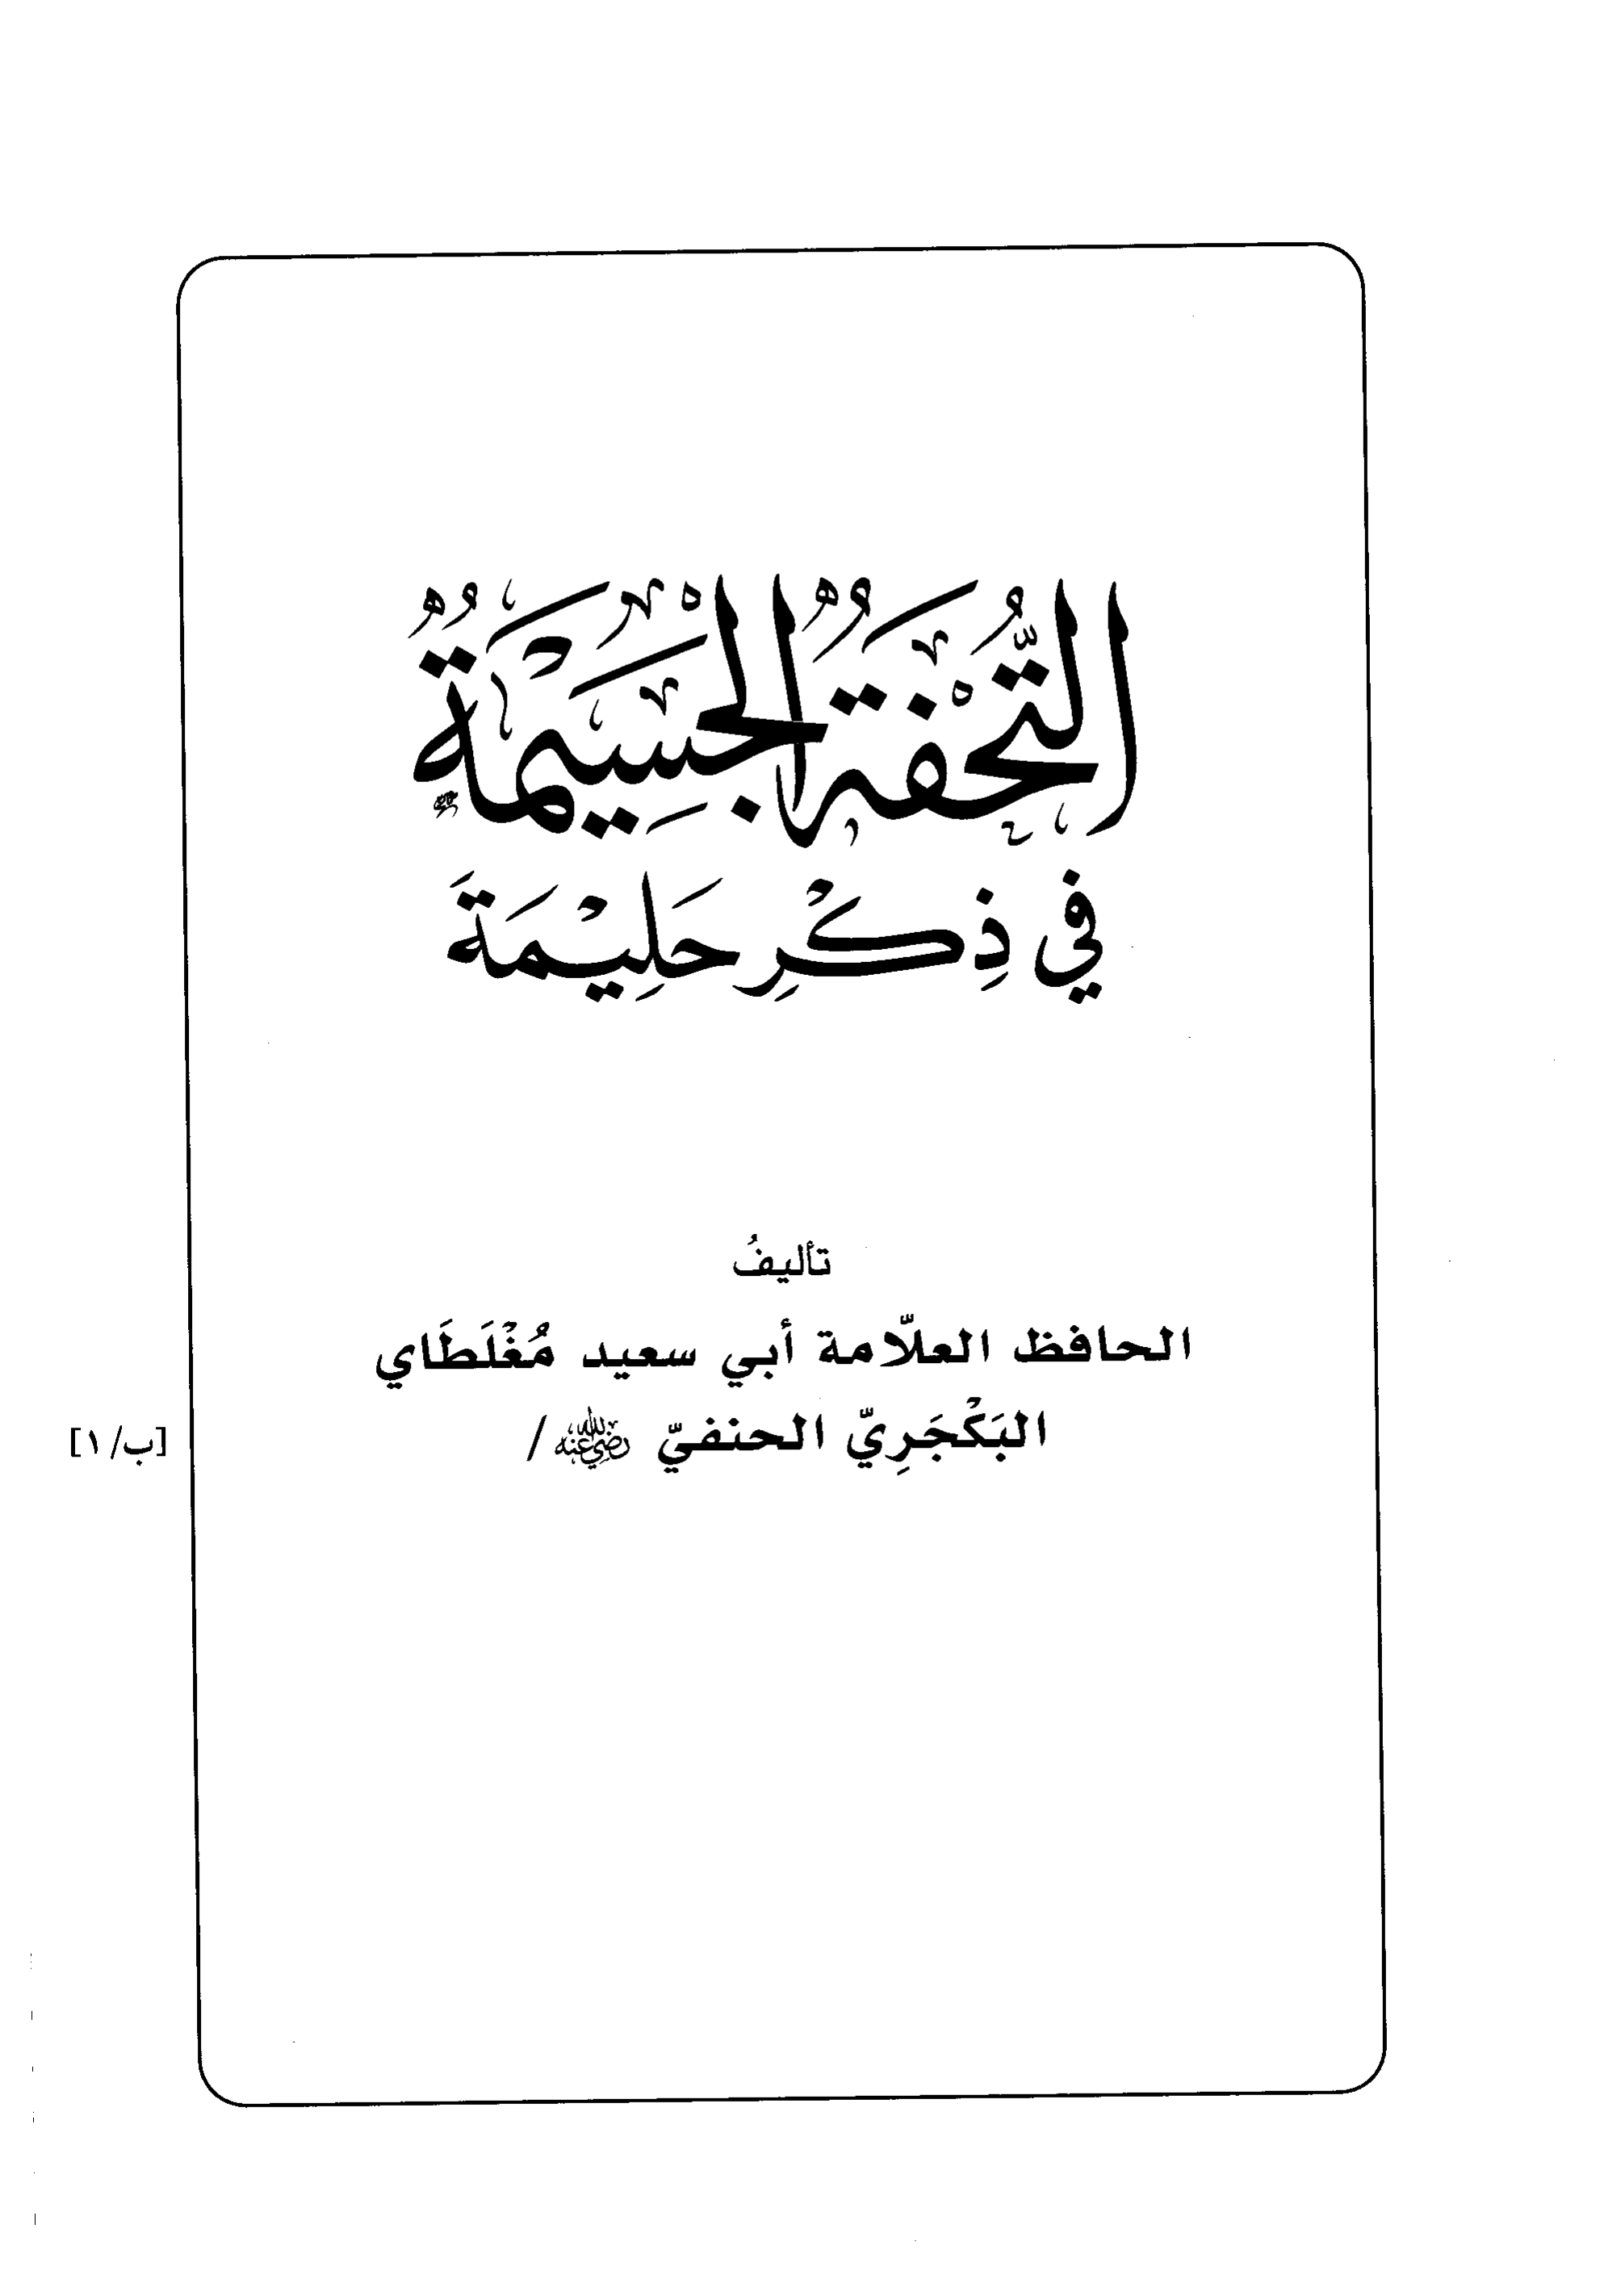 التُّحْفَةُ الْجَسِيمَةُ
فِي ذِكْرِ حَلِيْمَةَ
تأليفُ
الحافظ العلّامة أبي سعيد مُغْلَطَاي
البَكْجَرِيّ الحنفيّ رضي الله عنه /
[ب/١]